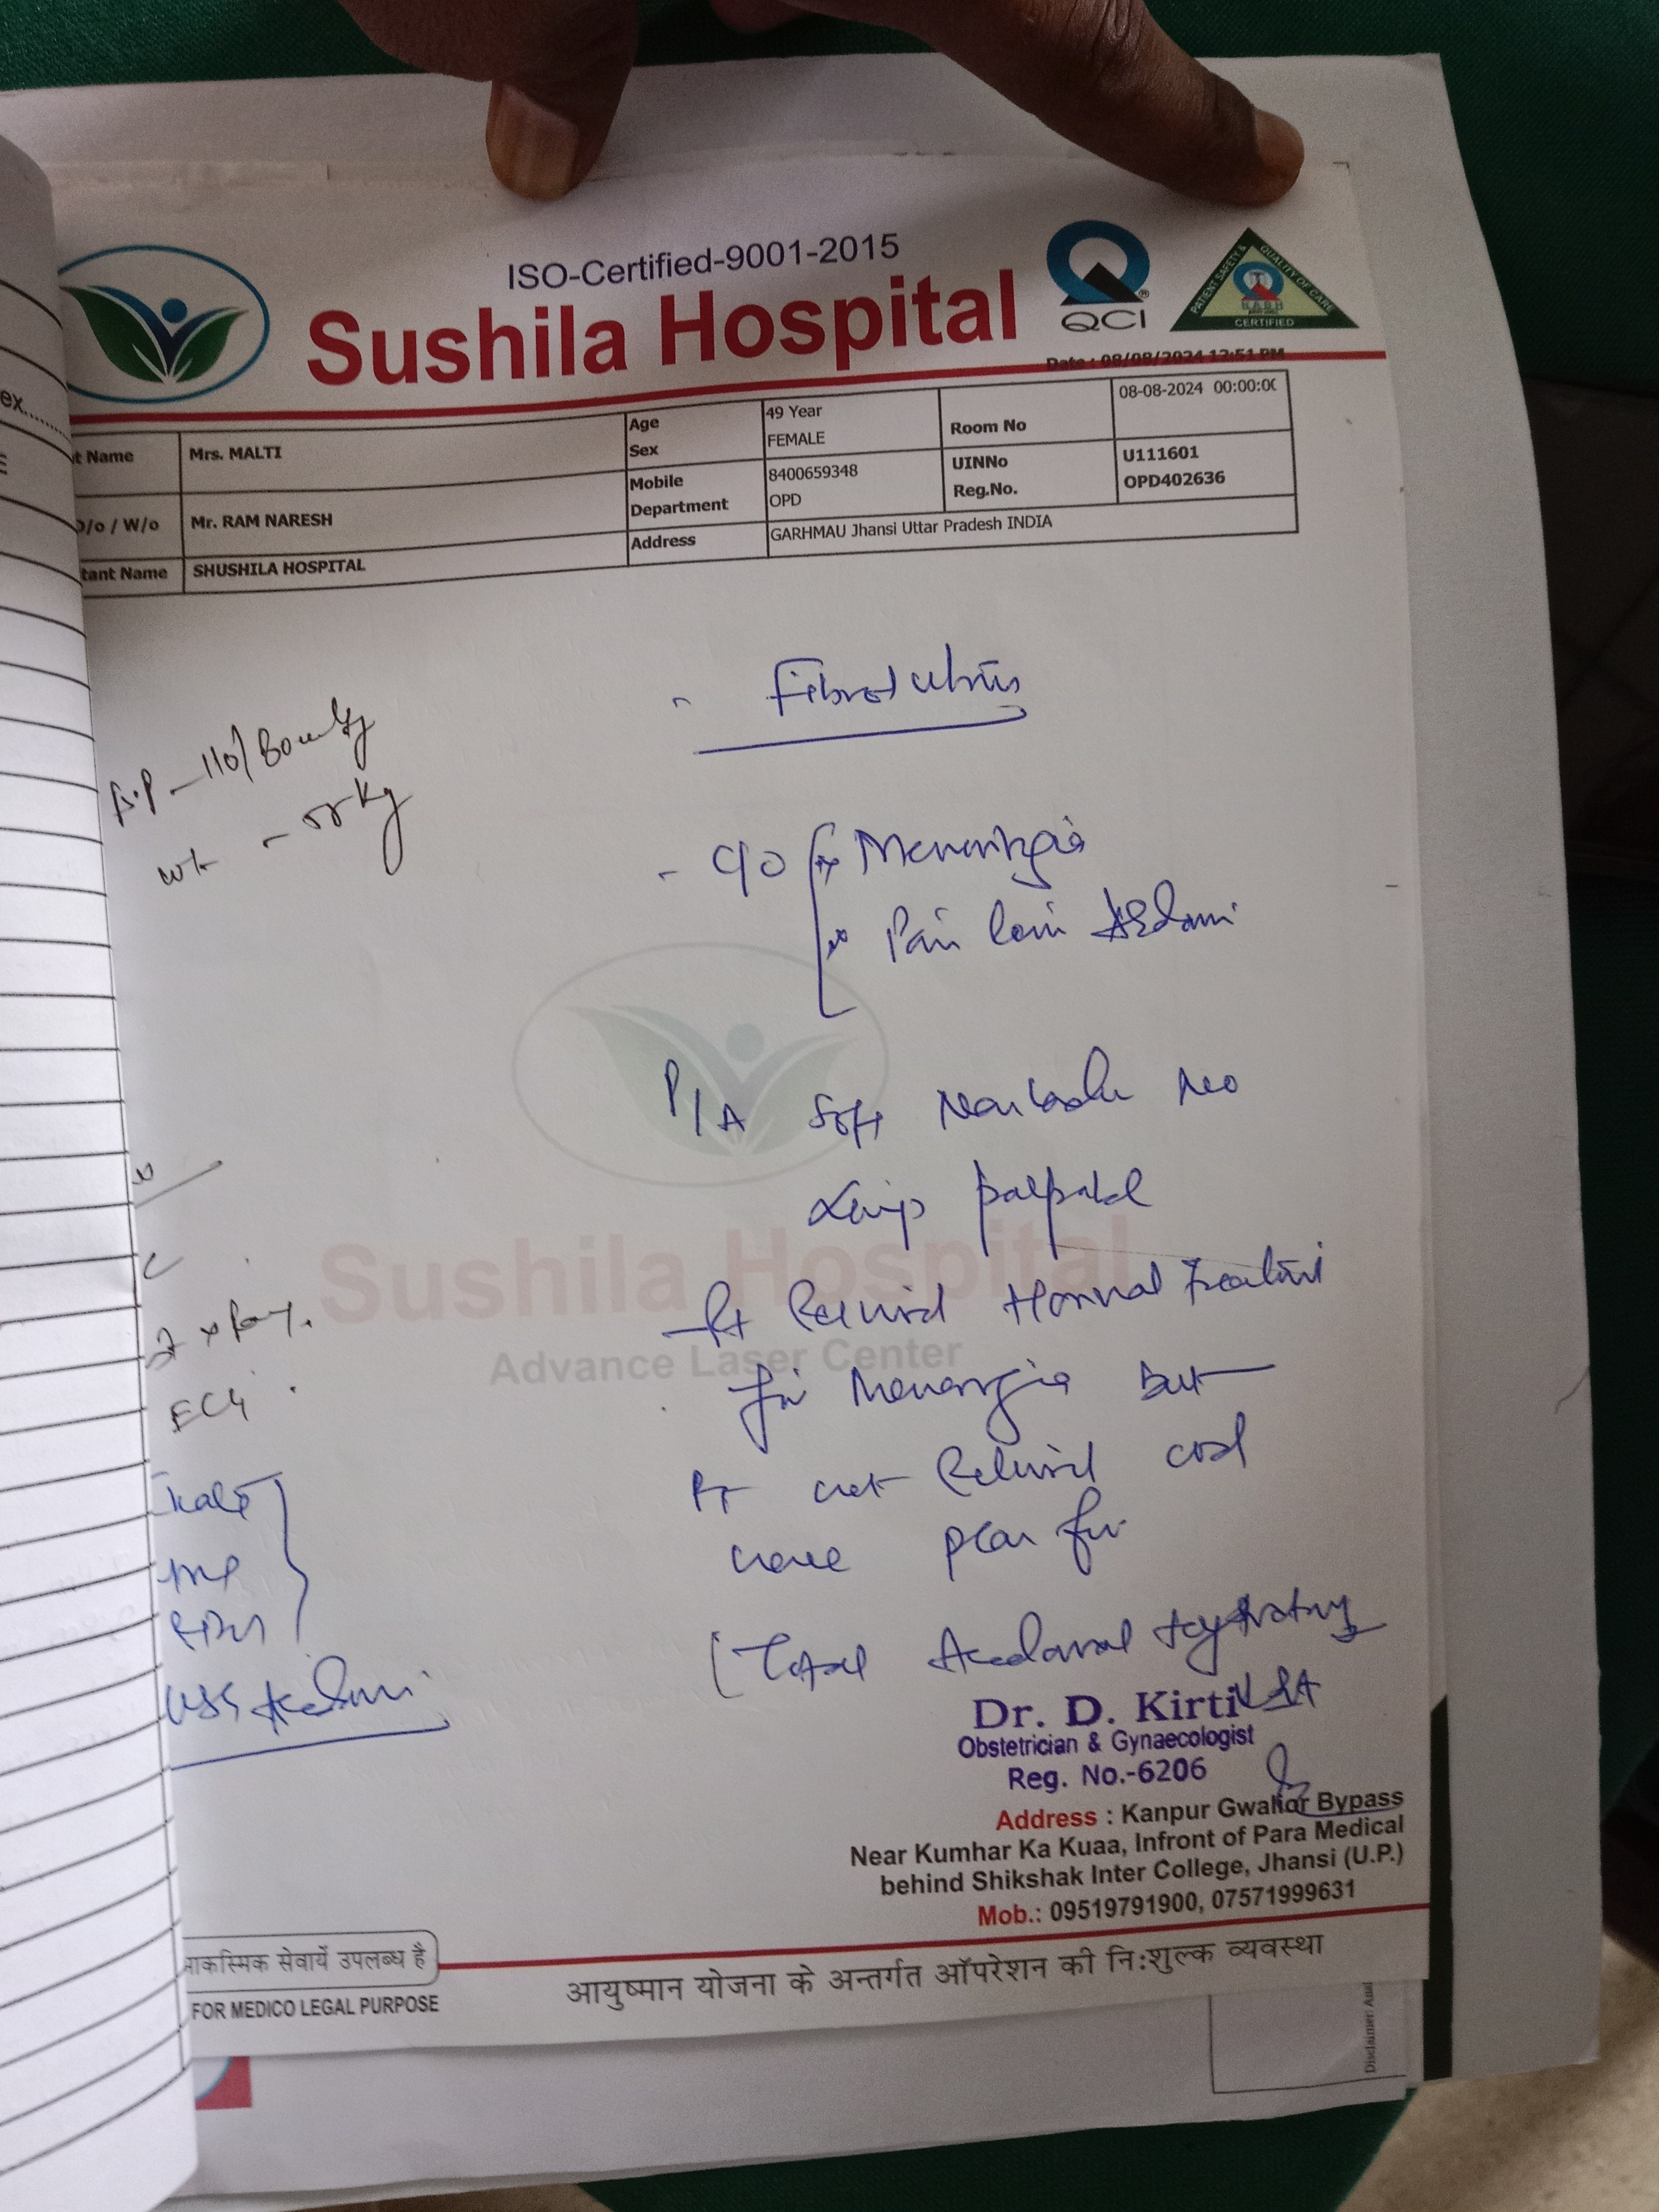 ISO-Certified-9001-2015
Sushila Hospital
QCI
PATIENT SAFETY & QUALITY OF CARE
CERTIFIED
Date : 08/08/2024 12:51 PM
t Name Mrs. MALTI Age 49 Year Room No 08-08-2024 00:00:0
Sex FEMALE
Mobile 8400659348 UINNo U111601
D/o / W/o Mr. RAM NARESH Department OPD Reg.No. OPD402636
tant Name SHUSHILA HOSPITAL Address GARHMAU Jhansi Uttar Pradesh INDIA
ex......
- Fibroid uterus
B.P - 110/80
wt - kg
- C/O Menorrhagia
Pain
P/A Soft No
Lump palpable
- Pt Hormonal treatment
for Menorrhagia But
Pt not
plan for
X Ray.
ECG
(Total Abdominal Hysterectomy
USG Abdomen
Sushila Hospital
Advance Laser Center
Dr. D. Kirti
Obstetrician & Gynaecologist
Reg. No.-6206
Address : Kanpur Gwalior Bypass
Near Kumhar Ka Kuaa, Infront of Para Medical
behind Shikshak Inter College, Jhansi (U.P.)
Mob.: 09519791900, 07571999631
आकस्मिक सेवायें उपलब्ध है
FOR MEDICO LEGAL PURPOSE
आयुष्मान योजना के अन्तर्गत ऑपरेशन की निःशुल्क व्यवस्था
Disclaimer: